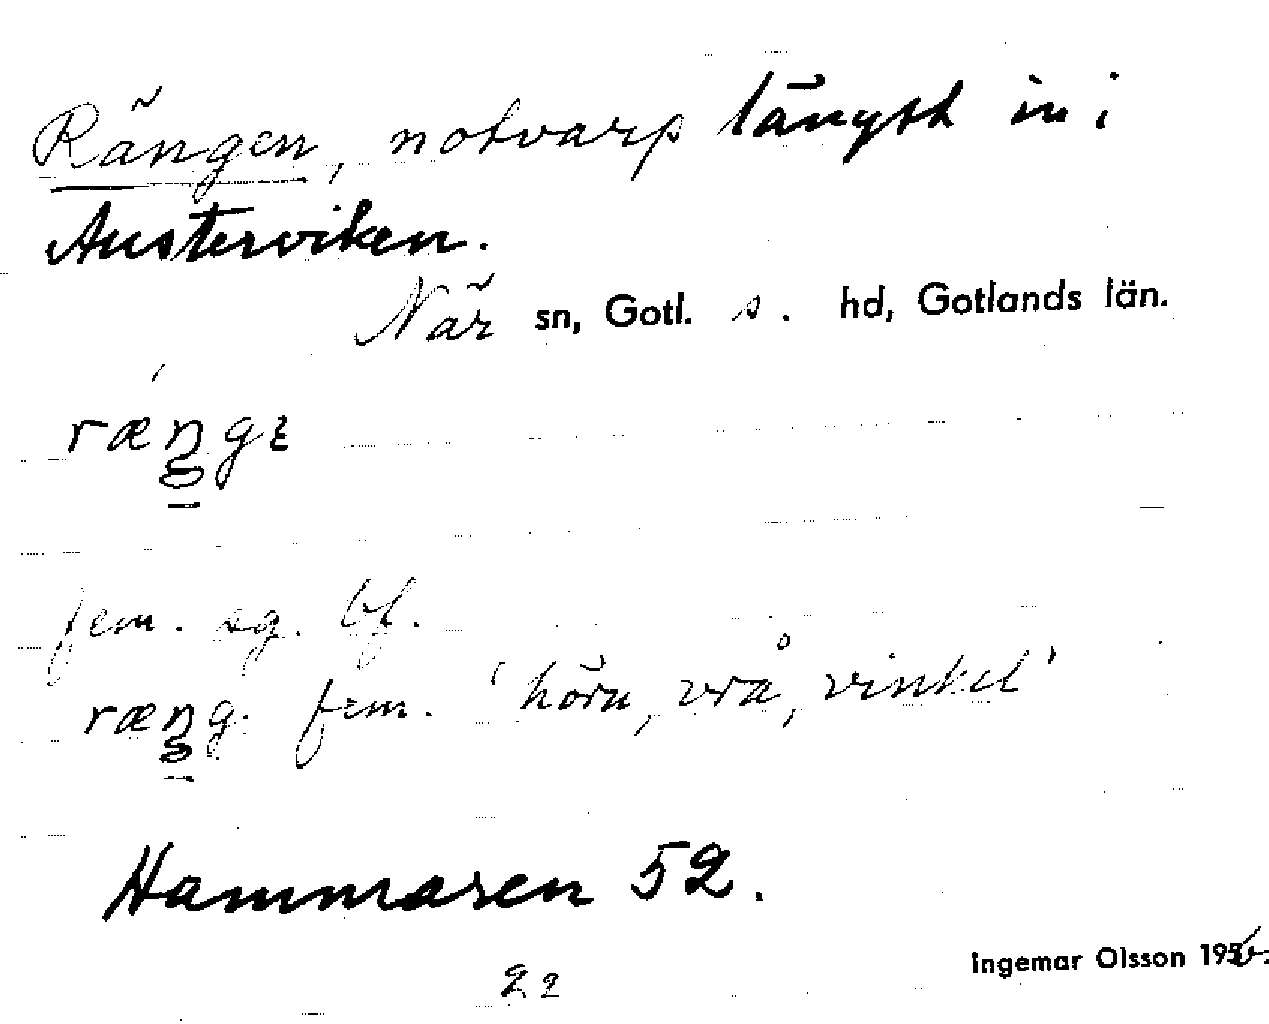 Rängen, notvarp längst in i
Austerviken.
När sn, Gotl. s. hd, Gotlands län.
ræŋgɛ
fem. sg. bf.
ræŋg. fem. 'hörn, vrå, vinkel'
Hammaren 52.
22
Ingemar Olsson 1956.